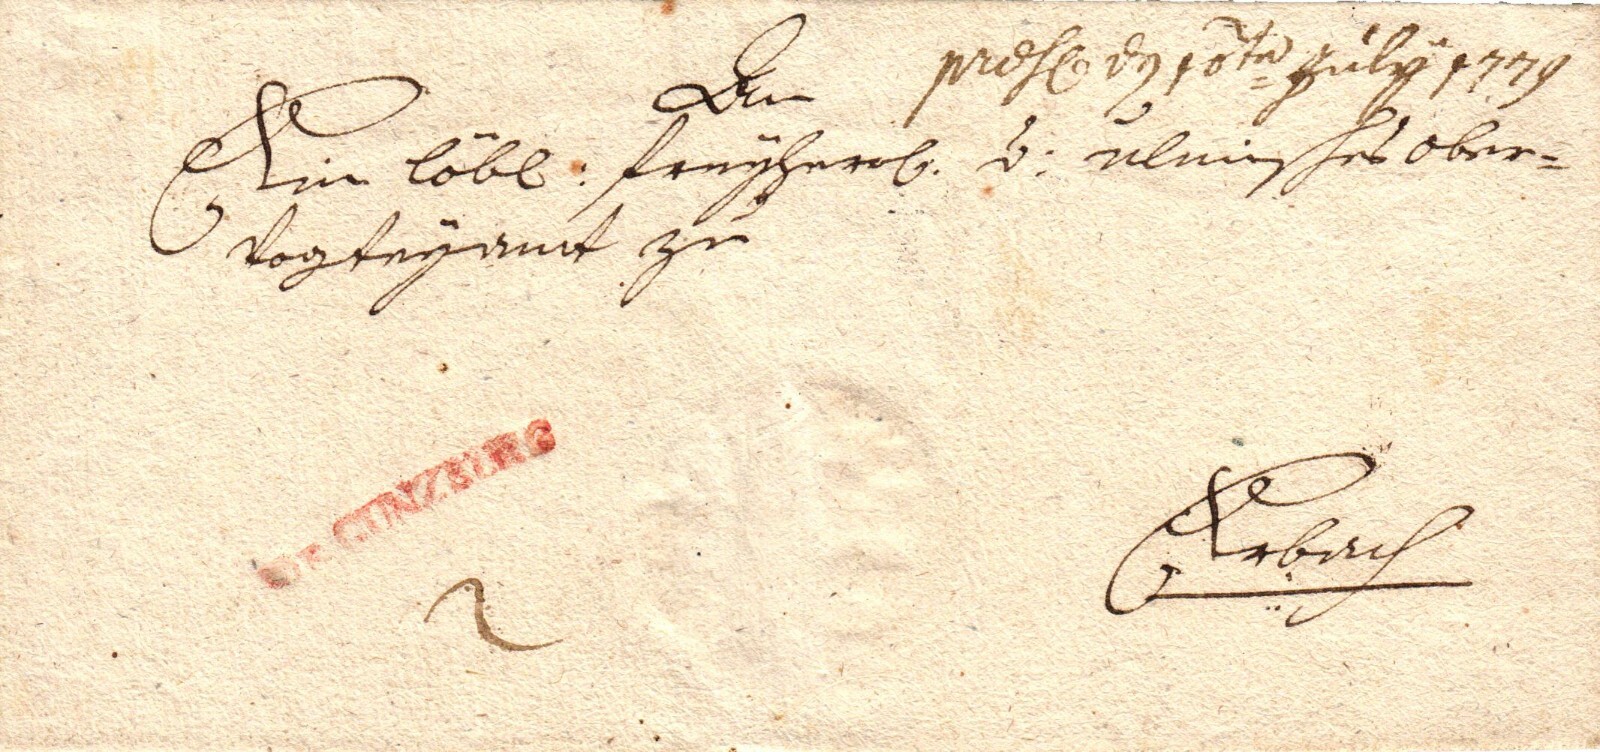 præs: dy 10tn July 1779
An
Ein löbl: freyherrl. v: ulmisches ober-
Vogteyamt zu
DE GUNZBURG
2
Erbach